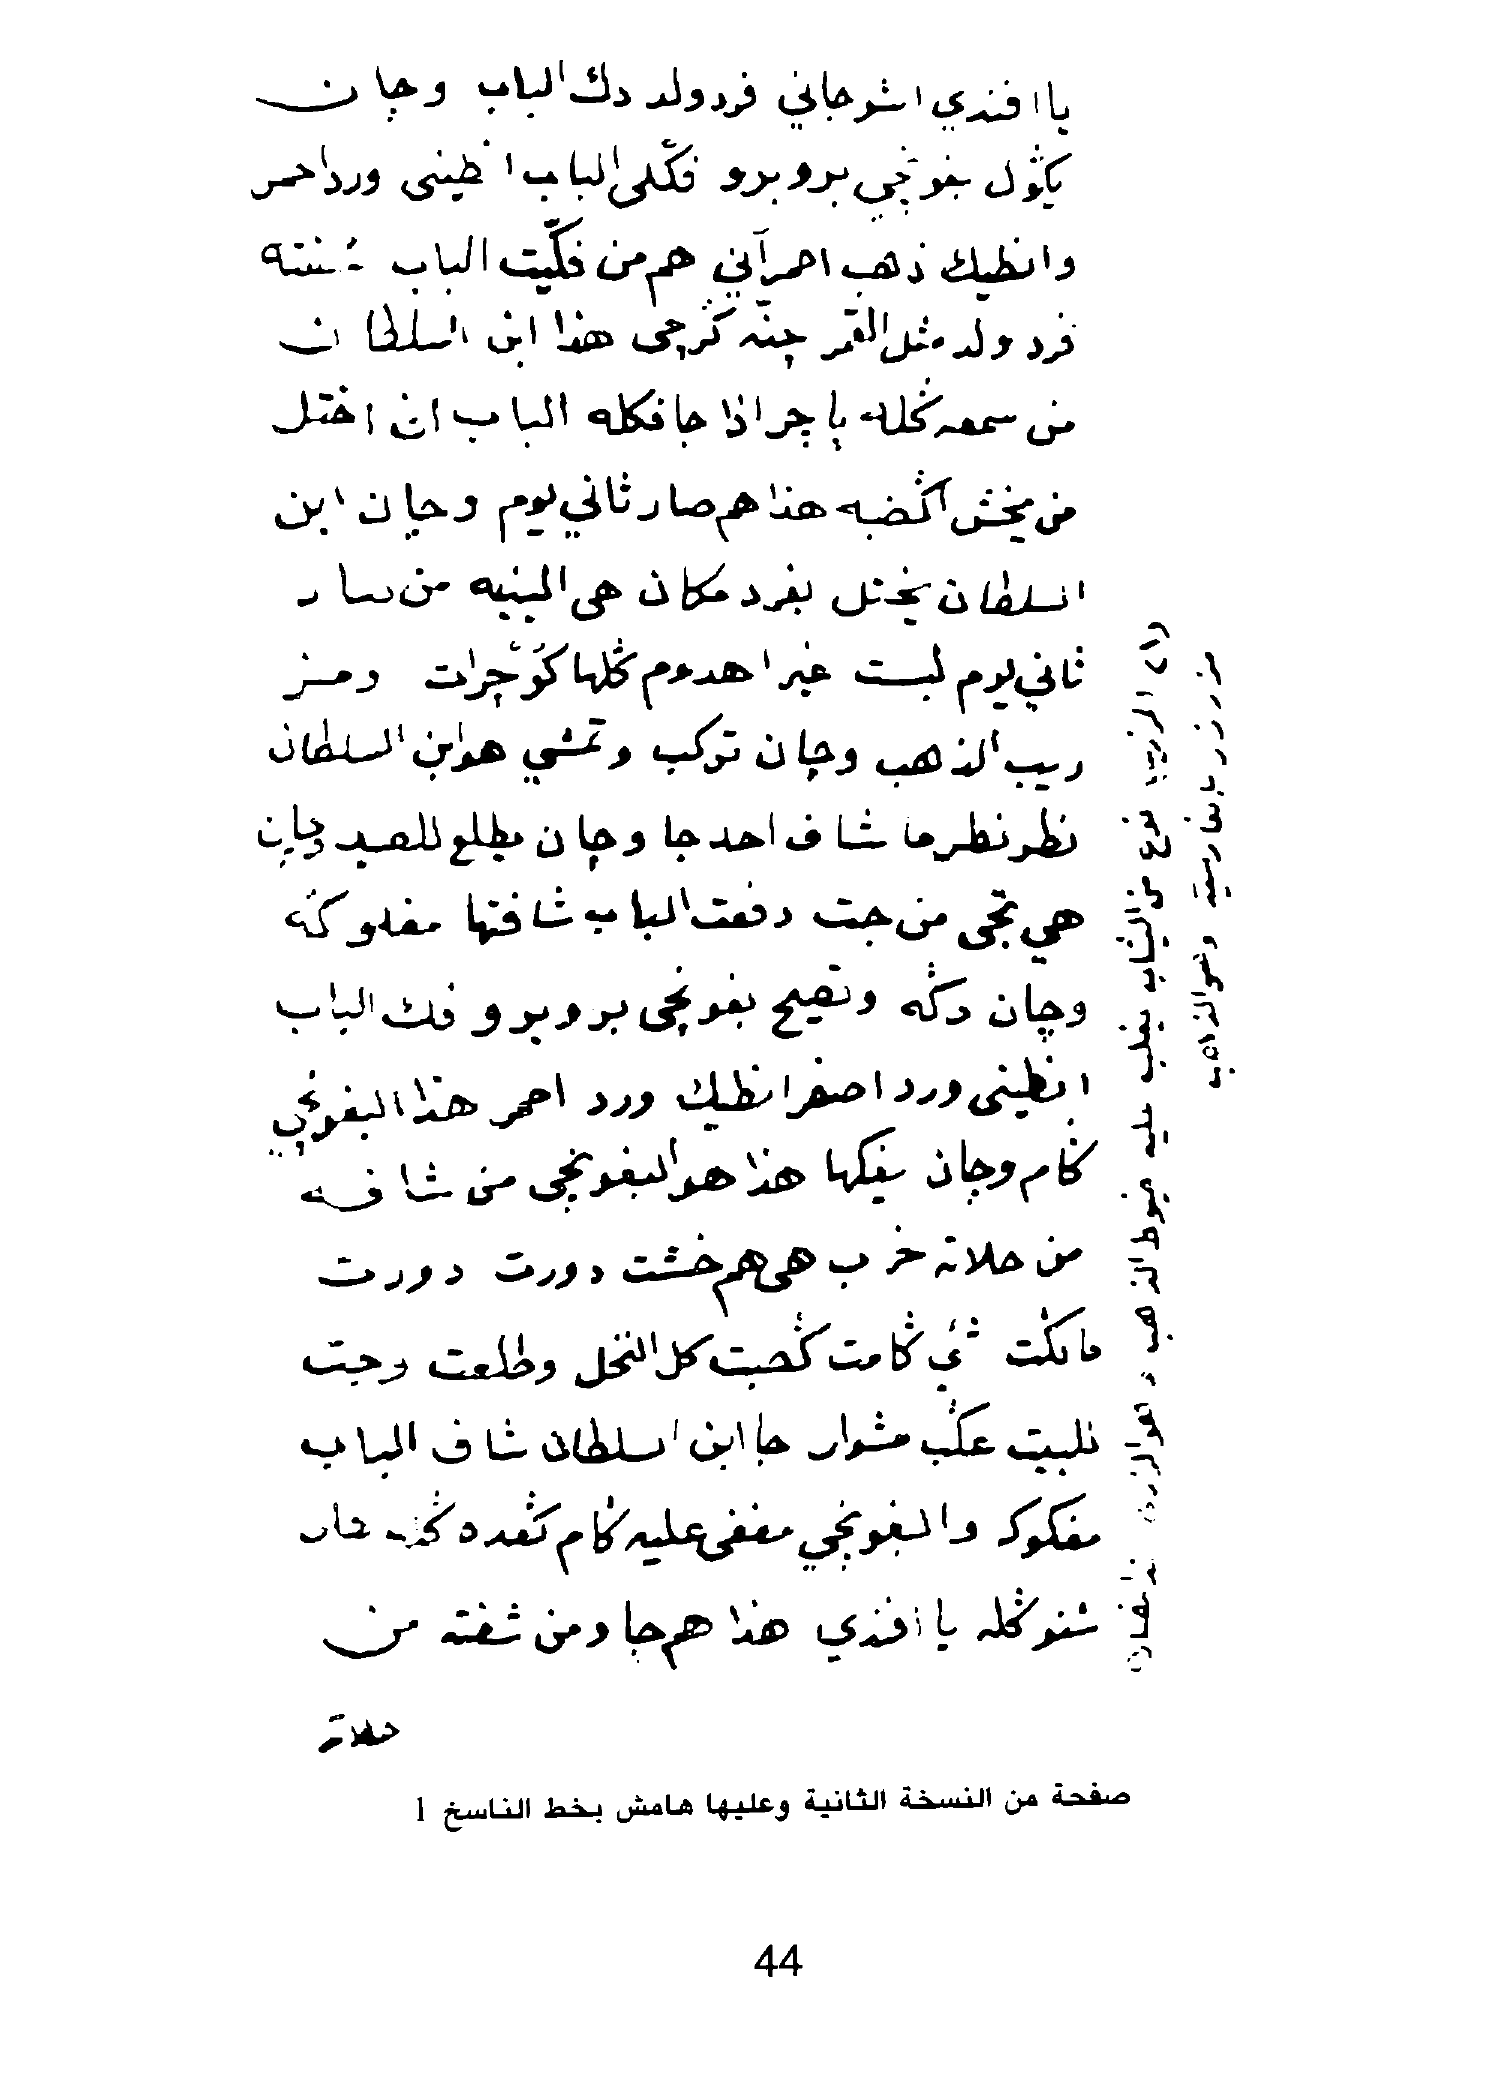 يا افندي اشو جاني فرد ولد دك الباب وچان
يكول بغونچي برو برو فكلي الباب انطيني ورد احمر
وانطيك ذهب احمر آني هم من فكيت الباب شفته
فرد ولد مثل القمر چنه گرجي هذا ابن السلطان
من سمعه گله يا چر اذا جا فكله الباب ان اختل
من يخش اگضبه هذا هم صار ثاني يوم وچان ابن
السلطان يختل بفرد مكان هي البنيه من
ثاني يوم لبست غير اهدوم گلها گوجرات ومن
ريب الذهب وچان تركب وتمشي هو ابن السلطان
نظر نظر ما شاف احد جا وچان يطلع للصيد وچان
هي تجي من جت دفعت الباب شافتها مغلوگه
وچان دگه وتصيح بغونچي برو برو فك الباب
انطيني ورد اصفر انطيك ورد احمر هذا البغونچي
گام وچان يفكها هذا هو البغونچي من شافه
من حلاته خرب هي هم خشت دورت دورت
ما لگت شي گامت گصبت كل النخل وطلعت وجت
للبيت عگب مشوار جا ابن السلطان شاف الباب
مفكوكه والبغونچي مغفى عليه گام گعده گله
شنو گله يا افندي هذا هم جا ومن شفته من
حلاته
(١) الزري نوع من الثياب يغلب عليه خيوط الذهب
بالفارسية وهو الذهب
صفحة من النسخة الثانية وعليها هامش بخط الناسخ 1
44